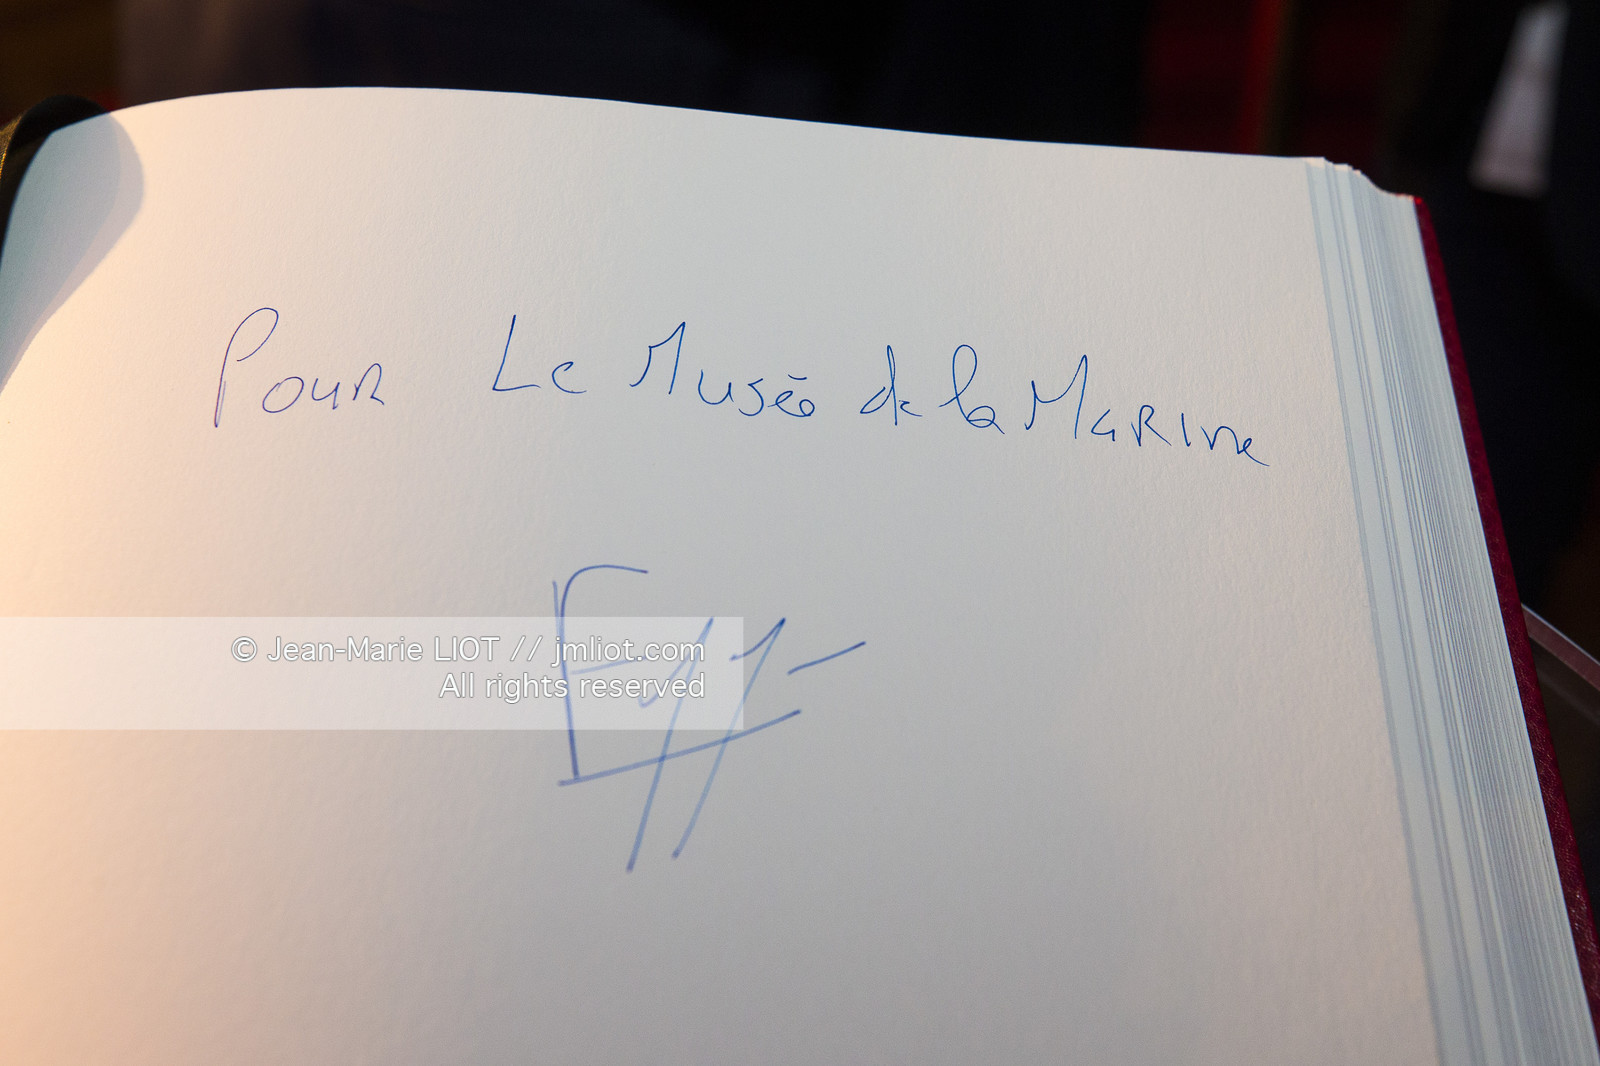 Pour Le Musée de la Marine
© Jean-Marie LIOT // jmliot.com
All rights reserved